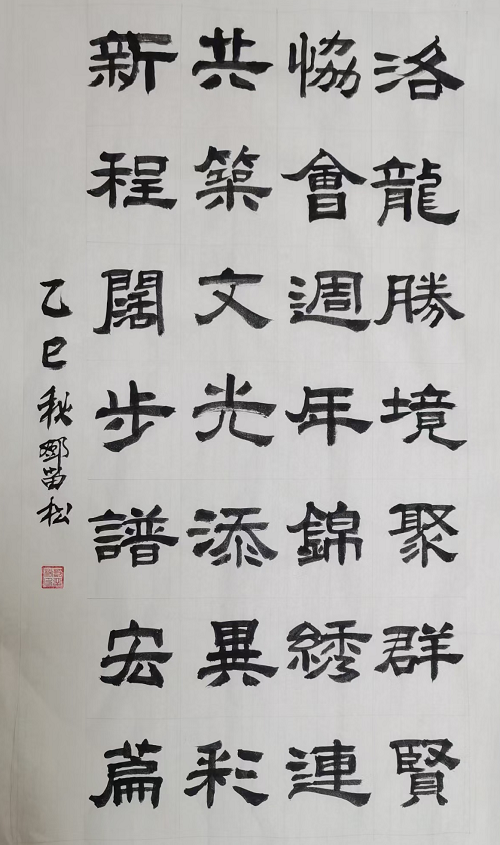 洛龍勝境聚群賢
協會週年錦綉連
共築文光添異彩
新程闊步譜宏篇
乙巳秋鄧苗松